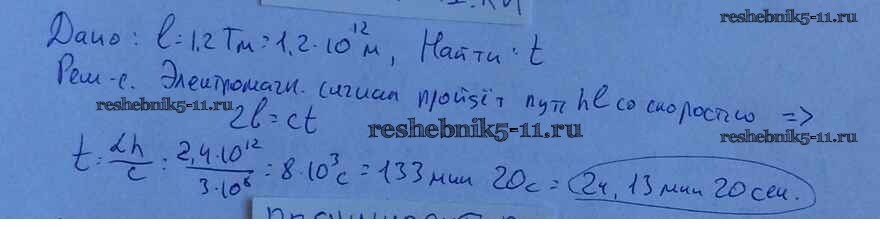 reshebnik5-11.ru
Дано: l=1,2 Тм=1,2·10¹² м, Найти: t
Реш-е. Электромагн. сигнал пройдёт путь 2l со скоростью =>
reshebnik5-11.ru
2l=ct
reshebnik5-11.ru
reshebnik5-11.ru
t = 2h/c = 2,4·10¹²/3·10⁸ = 8·10³ c = 133 мин 20 c = 2ч, 13 мин 20 сек.
reshebnik5-11.ru